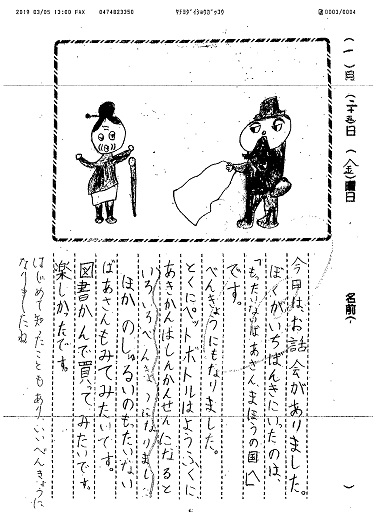 2019 03/05 13:00 FAX 0474823350 ﾏﾁﾖﾀﾞｲｼｮｳｶﾞｯｺｳ 0003/0004
(一)月(二十五)日(金)曜日
名前( )
今日はお話会がありました。
ぼくがいちばんきにいたのは、
「もったいないばあさん、まほうの国へ」
です。
べんきょうにもなりました。
とくにペットボトルはようふくに
あきかんはしんかんせんになると
いろいろべんきょうになりました
ほかのしゅるいのもたいない
ばあさんもみてみたいです。
図書かんで買ってみたいです。
楽しかたです。
はじめて知ったこともありいいべんきょうに
なりましたね